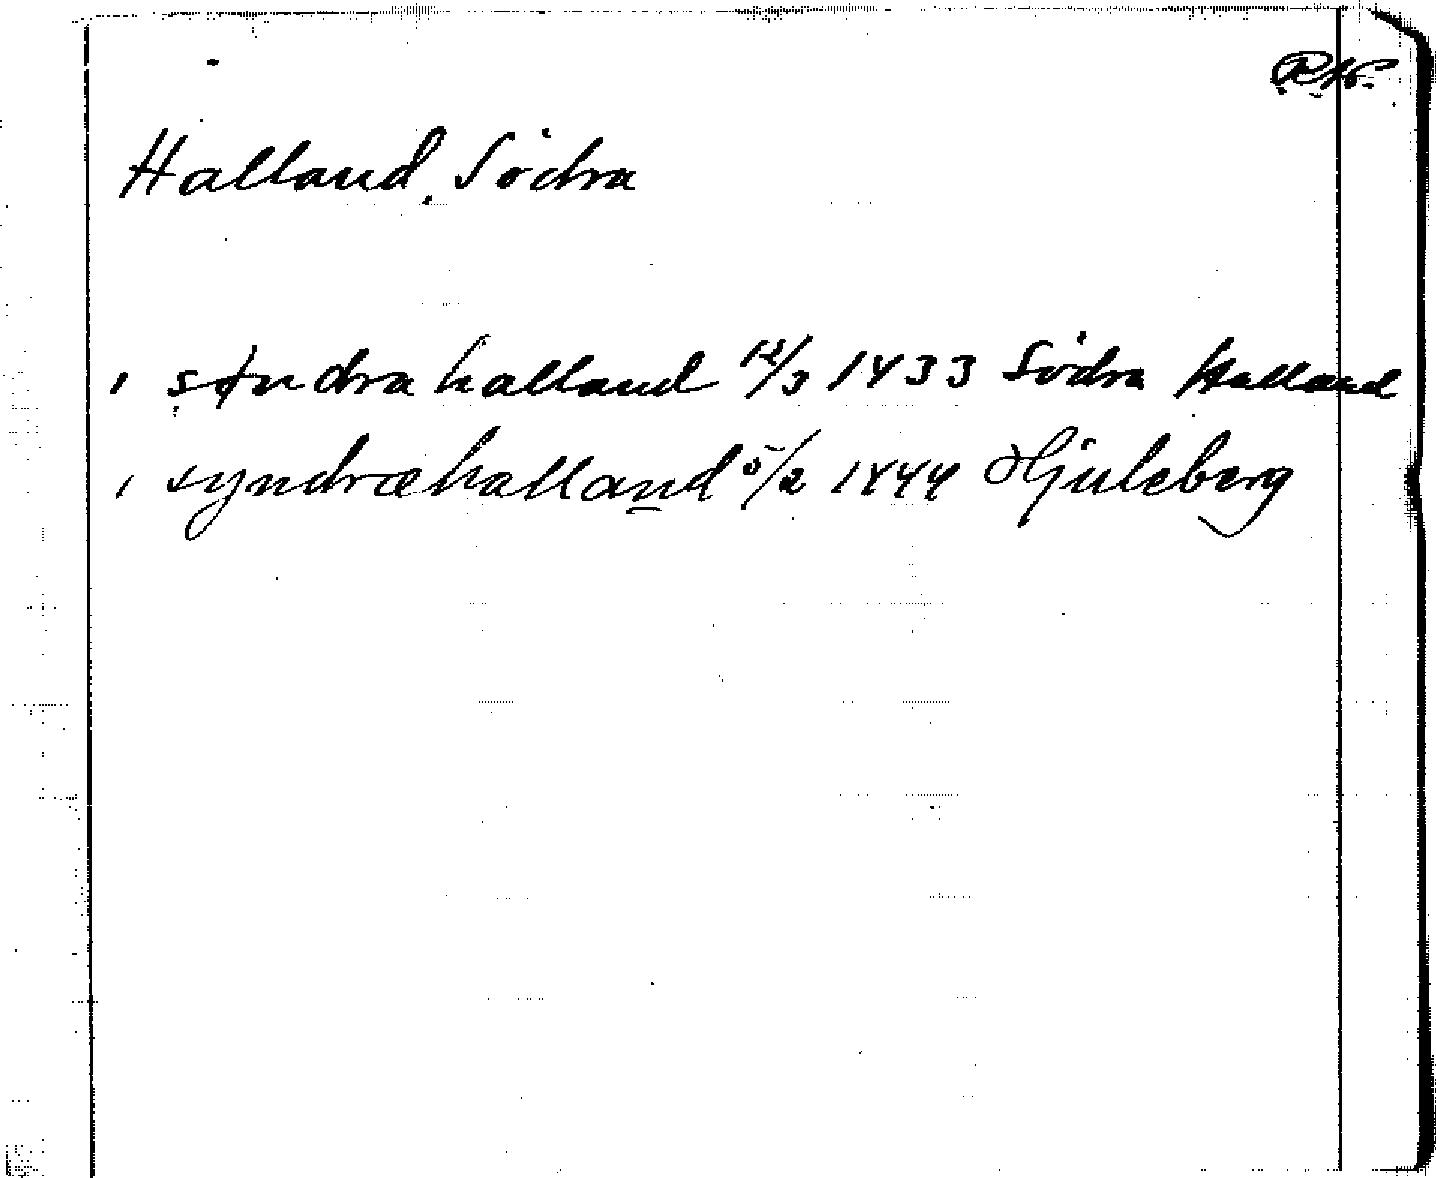 Halland, Södra
i søndra halland 12/3 1433 Södra Halland
i syndræhalland 5/2 1444 Hjuleberg